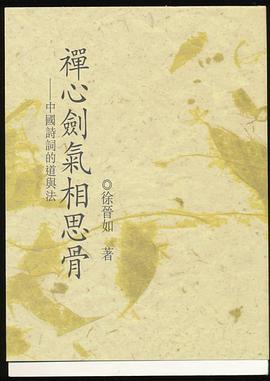 禪心劍氣相思骨
——中國詩詞的道與法
◎徐晉如 著